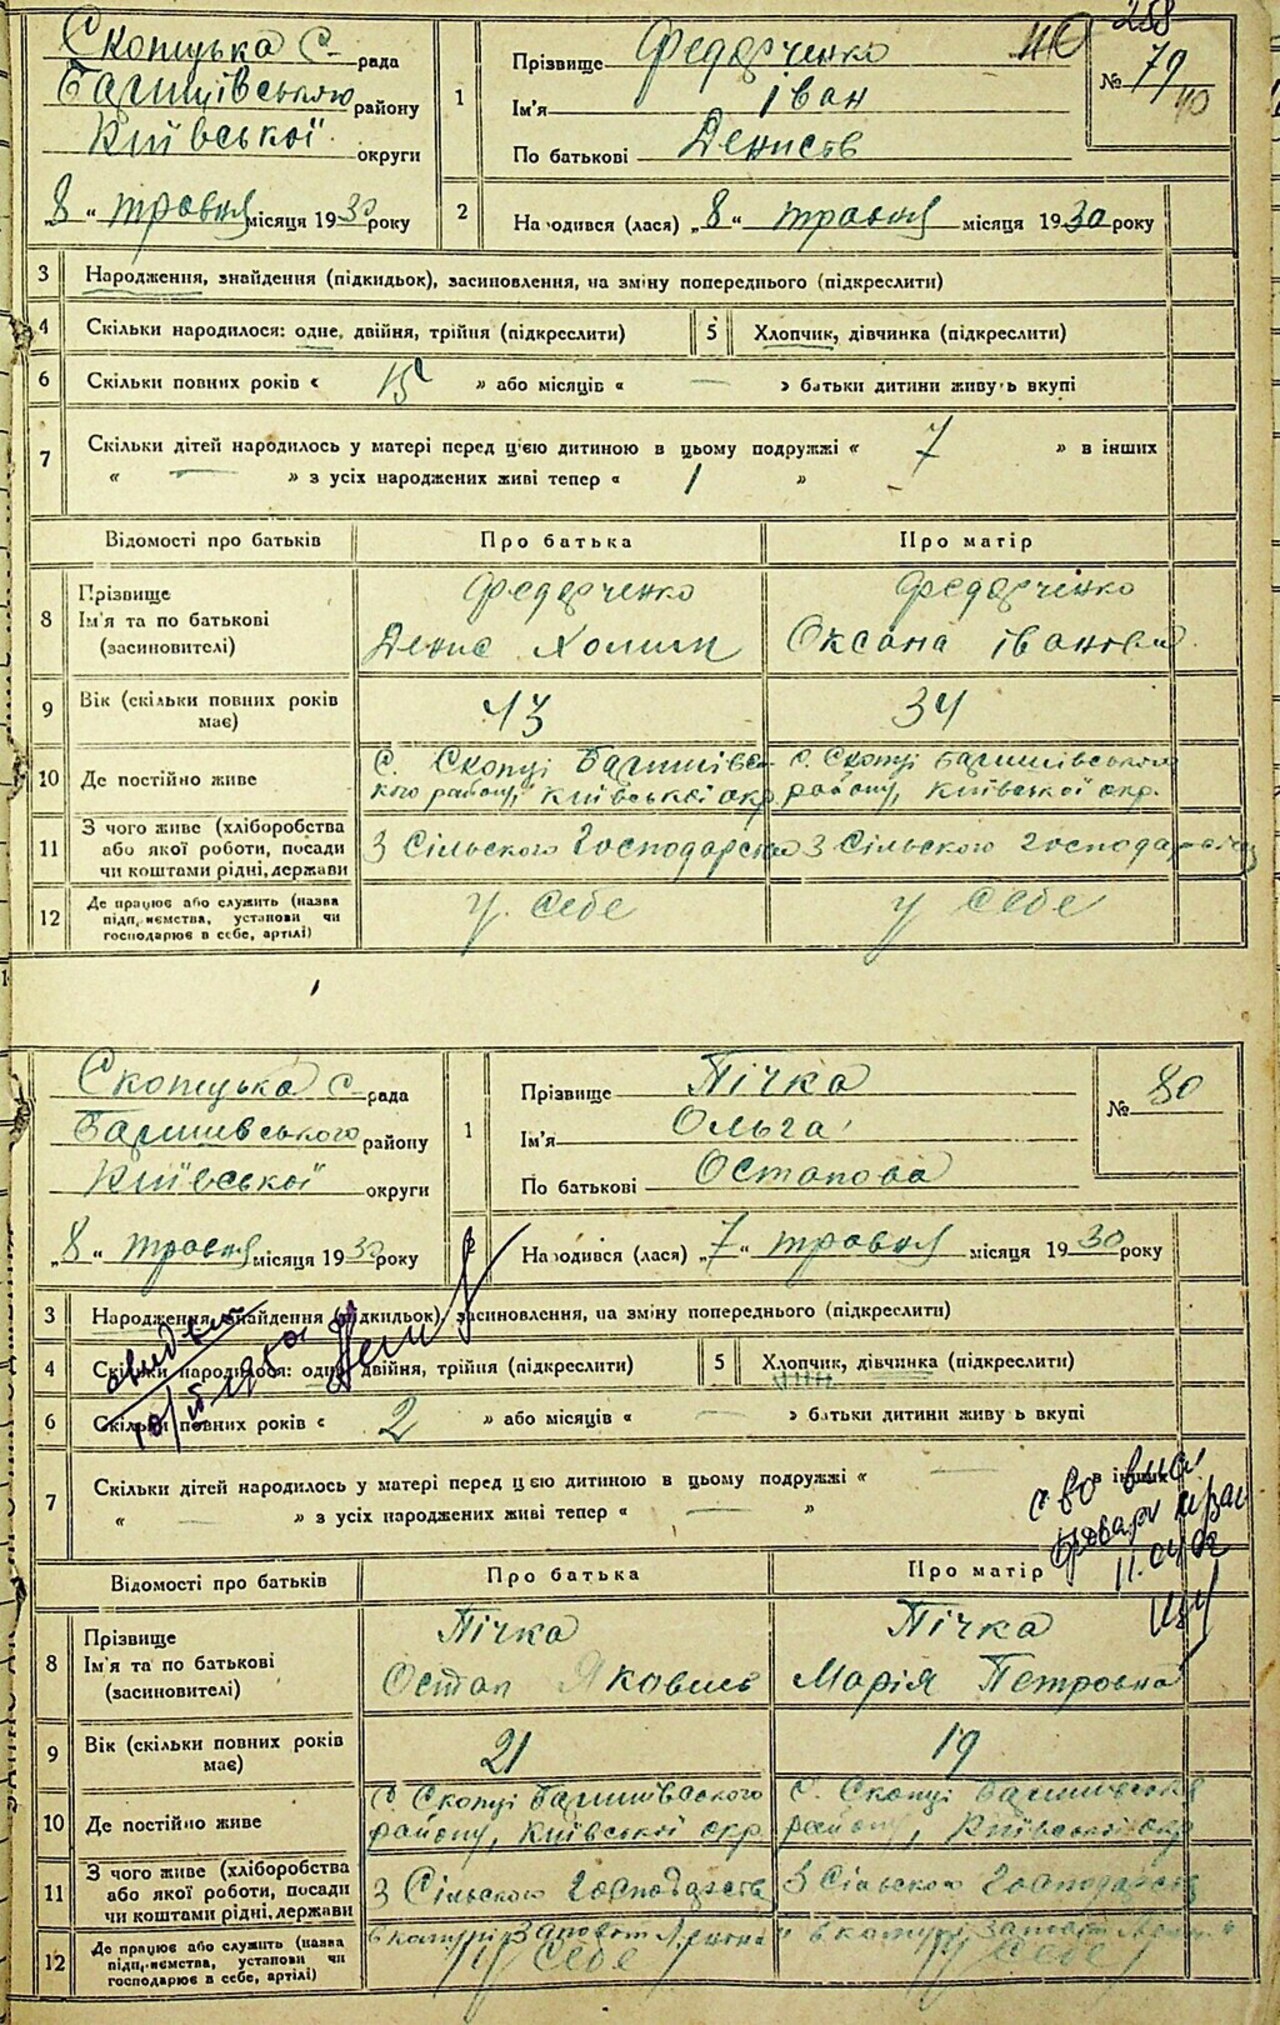 Скопцька с- рада
Баришівського району
Київської округи
„8“ травня місяця 1930 року
1
Прізвище Федорченко
Ім'я Іван
По батькові Денисів
258
№ 79
40
2
Народився (лася) „8“ травня місяця 1930 року
3 Народження, знайдення (підкидьок), засиновлення, на зміну попереднього (підкреслити)
4 Скільки народилося: одне, двійня, трійня (підкреслити) 5 Хлопчик, дівчинка (підкреслити)
6 Скільки повних років « 15 » або місяців « — » батьки дитини живуть вкупі
7 Скільки дітей народилось у матері перед цією дитиною в цьому подружжі « 7 » в інших
« — » з усіх народжених живі тепер « 1 »
Відомості про батьків Про батька Про матір
8 Прізвище
Ім'я та по батькові
(засиновителі)
Федорченко
Денис
Федорченко
Оксана Іванівна
9 Вік (скільки повних років
має)
43 34
10 Де постійно живе
с. Скопці Баришівсь-
кого району, Київської окр.
с. Скопці Баришівського
району, Київської окр.
11 З чого живе (хліборобства
або якої роботи, посади
чи коштами рідні, держави
З Сільского Господарства З Сільского Господарства
12 Де працює або служить (назва
підприємства, установи чи
господарює в себе, артілі)
у себе у себе
Скопцька с- рада
Баришівського району
Київської округи
„8“ травня місяця 1930 року
1
Прізвище Пічка
Ім'я Ольга
По батькові Остапова
№ 80
2
Народився (лася) „7“ травня місяця 1930 року
3 Народження, знайдення (підкидьок), засиновлення, на зміну попереднього (підкреслити)
4 Скільки народилося: одне, двійня, трійня (підкреслити) 5 Хлопчик, дівчинка (підкреслити)
6 Скільки повних років « 2 » або місяців « — » батьки дитини живуть вкупі
7 Скільки дітей народилось у матері перед цією дитиною в цьому подружжі « — » в інших
« — » з усіх народжених живі тепер « — »
11.04.02
Відомості про батьків Про батька Про матір
8 Прізвище
Ім'я та по батькові
(засиновителі)
Пічка
Остап Яковись
Пічка
Марія Петровна
9 Вік (скільки повних років
має)
21 19
10 Де постійно живе
с. Скопці Баришівського
району, Київської окр.
с. Скопці Баришівського
району, Київської окр.
11 З чого живе (хліборобства
або якої роботи, посади
чи коштами рідні, держави
З Сільского Господарства З Сільского Господарства
12 Де працює або служить (назва
підприємства, установи чи
господарює в себе, артілі)
у себе у себе